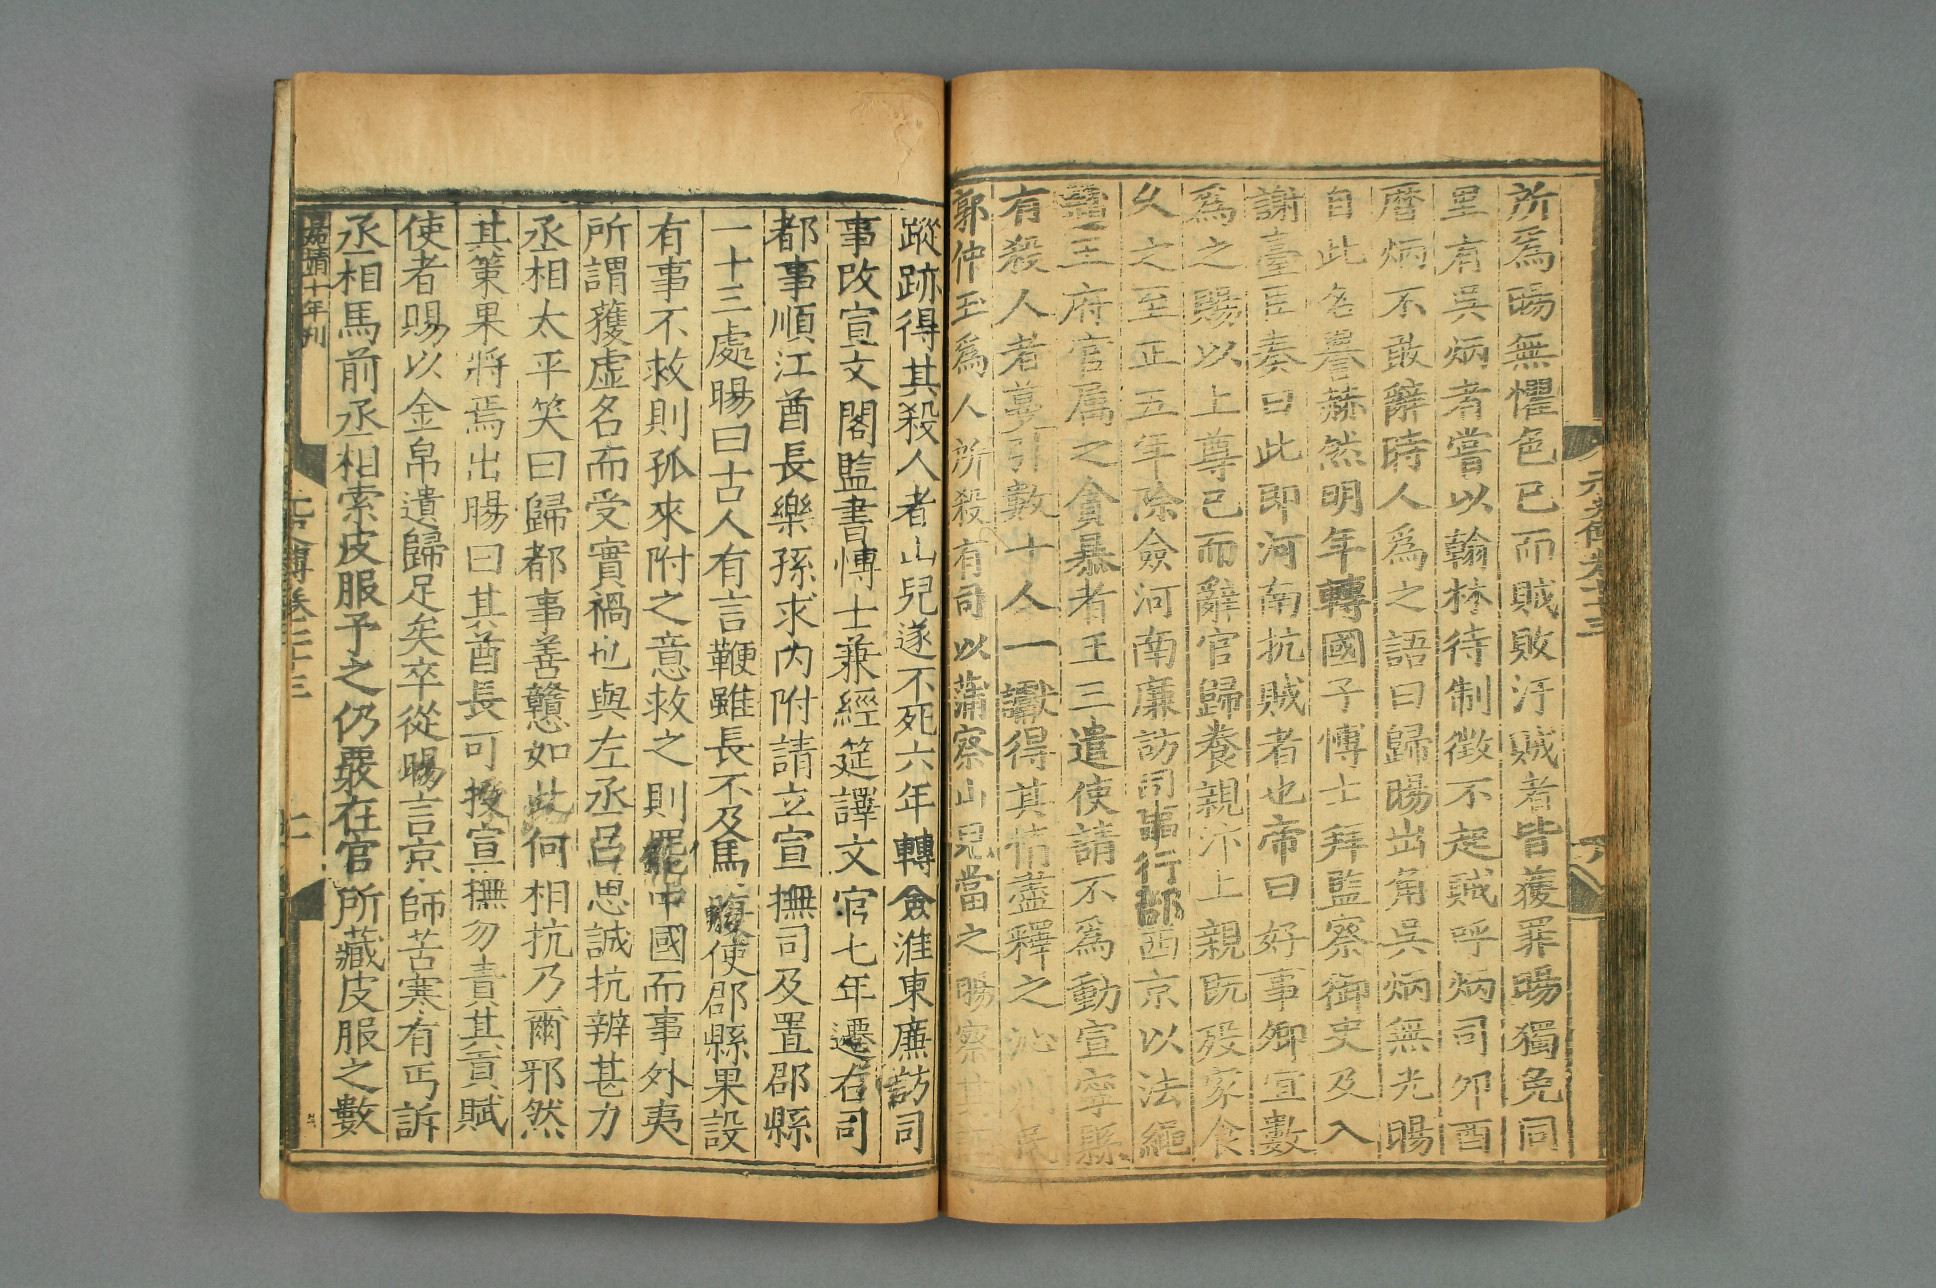 所爲暘無懼色已而賊敗汙賊者皆獲罪暘獨免同
里有吳炳者嘗以翰林待制徵不起賊呼炳司卯酉
曆炳不敢辭時人爲之語曰歸暘出角吳炳無光暘
自此名譽赫然明年轉國子博士拜監察御史及入
謝臺臣奏曰此即河南抗賊者也帝曰好事卿宜數
爲之賜以上尊已而辭官歸養親汴上親旣歿家食
久之至正五年除僉河南廉訪司事行部西京以法繩
趙王府官屬之貪暴者王三遣使請不爲動宣寧縣
有殺人者蔓引數十人一讞得其情盡釋之沁州民
郭仲玉爲人所殺有司以蒲察山兒當之暘察其誣
蹤跡得其殺人者山兒遂不死六年轉僉淮東廉訪司
事改宣文閣監書博士兼經筵譯文官七年遷右司
都事順江酋長樂孫求內附請立宣撫司及置郡縣
一十三處暘曰古人有言鞭雖長不及馬腹使郡縣果設
有事不救則孤來附之意救之則罷中國而事外夷
所謂獲虛名而受實禍也與左丞呂思誠抗辨甚力
丞相太平笑曰歸都事善戇如此何相抗乃爾邪然
其策果將焉出暘曰其酋長可授宣撫勿責其貢賦
使者賜以金帛遺歸足矣卒從暘言京師苦寒有丐訴
丞相馬前丞相索皮服予之仍覈在官所藏皮服之數
嘉靖十年刊
元史傳卷七十三